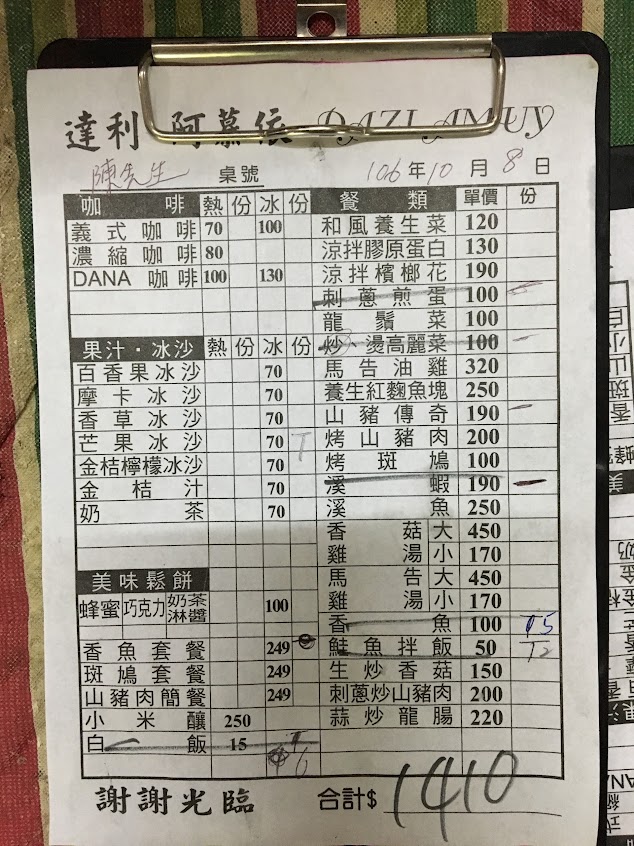 達利 阿慕依 DAZI AMUY
陳先生 桌號 106年10月8日
咖啡 熱 份 冰 份
義式咖啡 70 100
濃縮咖啡 80
DANA 咖啡 100 130
果汁・冰沙 熱 份 冰 份
百香果冰沙 70
摩卡冰沙 70
香草冰沙 70
芒果冰沙 70
金桔檸檬冰沙 70
金桔汁 70
奶茶 70
美味鬆餅
蜂蜜 巧克力 奶茶淋醬 100
香魚套餐 249
斑鳩套餐 249
山豬肉簡餐 249
小米釀 250
白飯 15
餐類 單價 份
和風養生菜 120
涼拌膠原蛋白 130
涼拌檳榔花 190
刺蔥煎蛋 100
龍鬚菜 100
炒、燙高麗菜 100
馬告油雞 320
養生紅麴魚塊 250
山豬傳奇 190
烤山豬肉 200
烤斑鳩 100
溪蝦 190
溪魚 250
香菇 大 450
雞湯 小 170
馬告 大 450
雞湯 小 170
香魚 100
鮭魚拌飯 50
生炒香菇 150
刺蔥炒山豬肉 200
蒜炒龍腸 220
謝謝光臨 合計$ 1410